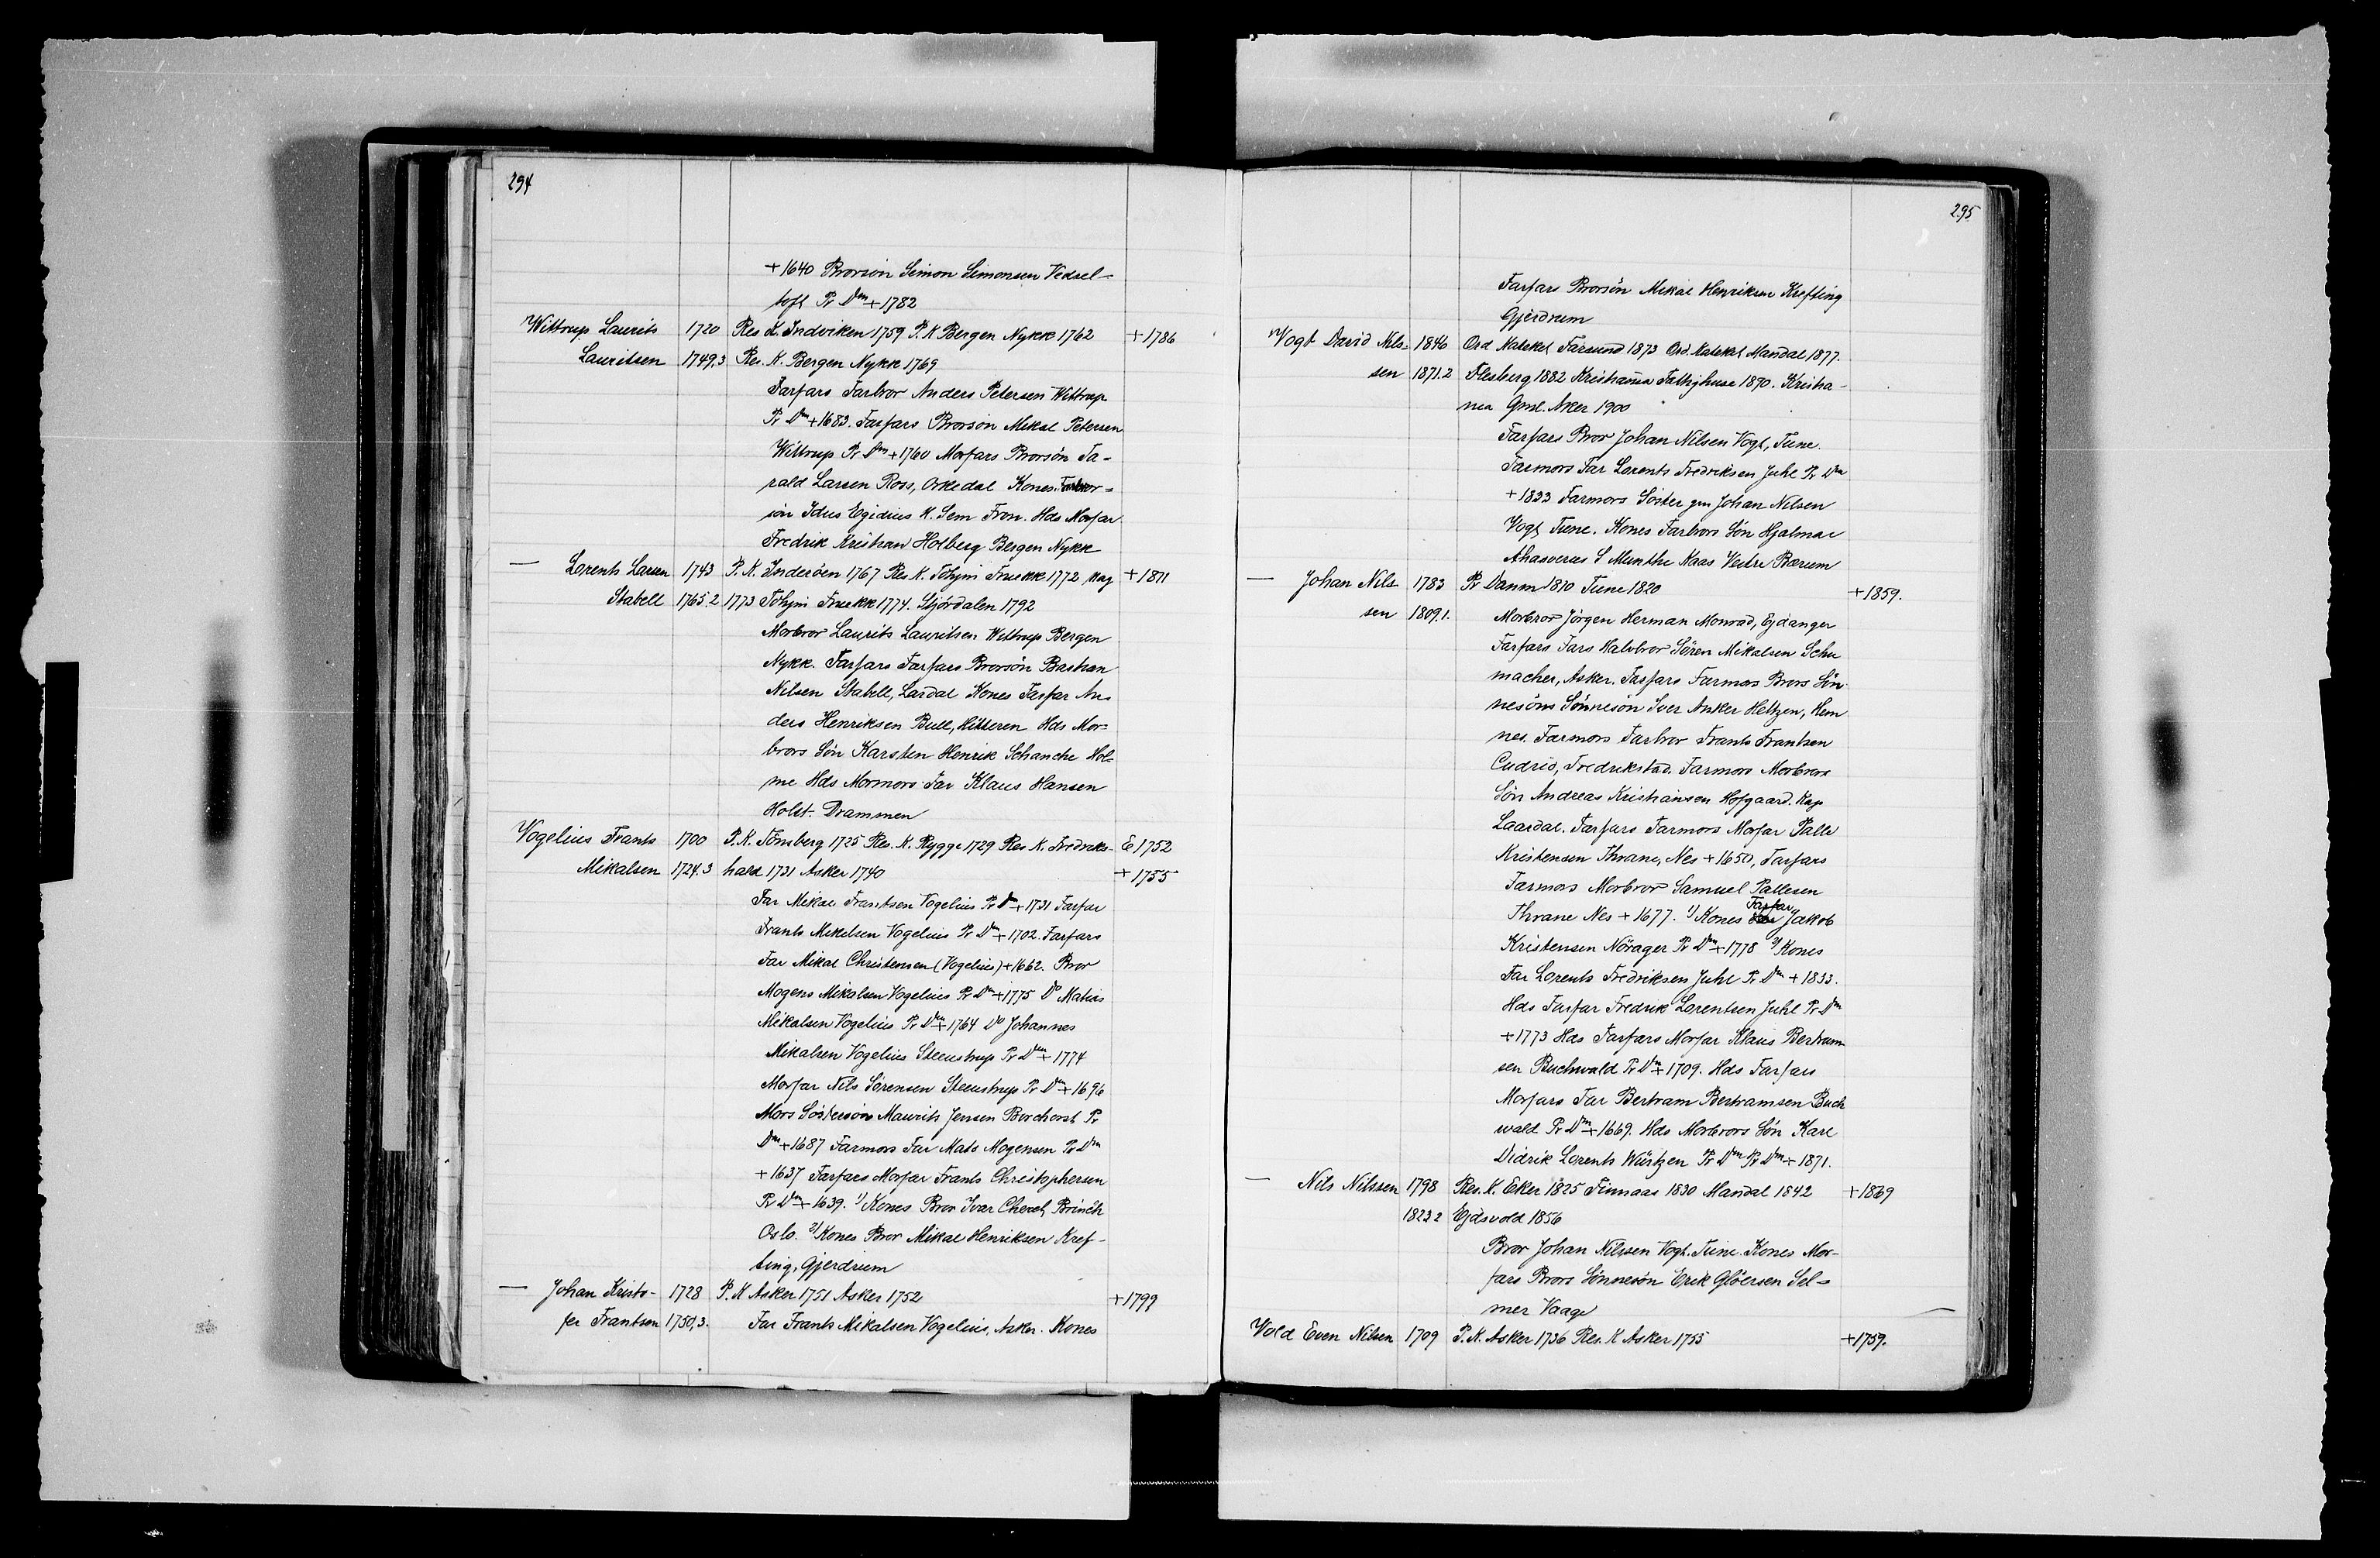 294
+ 1640 Brorsön Simon Simonsen Vedsel-
toft Pr Dm + 1782
Wittrup Laurits 1720 Res K. Indviken 1759 P. K Bergen Nykk 1762 + 1786
Lauritsen 1749,3 Res. K. Bergen Nykk 1769
Farfars Farbror Anders Petersen Wittrup
Pr Dm + 1683. Farfars Brorsön Mikal Petersen
Wittrup Pr Dm + 1760 Morfars Brorsön Ja-
rald Larsen Ross, Orkedal Kones Farbror-
sön Idus Egidius K. Sem Fron. Hds Morfar
Fredrik Kristian Holberg Bergen Nykk
— Lorents Larsen 1743 P. K. Inderöen 1767 Res K. Tchjm Fruekk 1772 Kag + 1811
Stabell 1765.2 1773 Tchjm Fruekk 1774. Stjördalen 1792
Morbror Laurits Lauritsen Wittrup Bergen
Nykk. Farfars Farfars Brorsön Bastian
Nilsen Stabell, Lardal Kones Farfar An-
ders Henriksen Bull, Hitteren Hds Mor-
brors Sön Karsten Henrik Schanche Hol-
me Hds Mormors Far Klaus Hansen
Holst. Drammen
Vogelius Frants 1700 P. K. Tönsberg 1725 Res. K. Rygge 1729 Res K. Fredriks- E 1752
Mikalsen 1724.3 hald 1731 Asker 1740 + 1755
Far Mikal Frantsen Vogelius Pr Dm + 1731 Farfar
Frants Mikelsen Vogelius Pr Dm + 1702. Farfars
Far Mikal Christensen (Vogelius) + 1662. Bror
Mogens Mikalsen Vogelius Pr Dm + 1775 Do Matias
Mikalsen Vogelius Pr Dm + 1764 Do Johannes
Mikalsen Vogelius Steenstrup Pr Dm + 1774
Morfar Nils Sörensen Steenstrup Pr Dm + 1696
Mors Söstersön Maurits Jensen Borchorst Pr
Dm + 1687 Farmors Far Mads Mogensen Pr Dm
+ 1637 Farfars Morfar Frants Christophersen
Pr Dm + 1639. 1) Kones Bror Ivar Brinch
Oslo. 2) Kones Bror Mikal Henriksen Kref-
ting, Gjerdrum
— Johan Kristo- 1728 P. K Asker 1751 Asker 1752 + 1799
fer Frantsen 1750,3. Far Frants Mikalsen Vogelius, Asker. Kones
295
Farfars Brorsön Mikal Henriksen Krefting
Gjerdrum
Vogt David Nils- 1846 Ord Katekel Farsund 1873 Ord. Katekel Mandal 1877.
sen 1871.2 Flesberg 1882 Kristiania Fattighuse 1890. Kristia-
nia Gml. Aker 1900
Farfars Bror Johan Nilsen Vogt, Tune.
Farmors Far Lorents Fredriksen Juhl Pr Dm
+ 1833 Farmors Söster gm Johan Nilsen
Vogt Tune. Kones Farbrors Sön Hjalmar
Ahasverus S Munthe Kaas Vestre Bærum
— Johan Nils 1783 Pr Danm 1810 Tune 1820 + 1859.
sen 1809,1. Morbror Jörgen Herman Monrad, Ejdanger
Farfars Fars Halvbror Sören Mikalsen Schu
macher, Asker. Farfars Farmors Brors Sön-
nesöns Sönnesön Iver Anker Heltzen, Hem
nes. Farmors Farbror Frants Frantsen
Cudrio, Fredrikstad. Farmors Morbrors
Sön Andreas Kristiansen Hofgaard. Kap
Laardal. Farfars Farmors Morfar Palle
Kristensen Thrane, Nes + 1650, Farfars
Farmors Morbror Samuel Pallesen
Thrane Nes + 1677. 1) Kones Farfar Jakob
Kristensen Nörager Pr Dm + 1778 2) Kones
Far Lorents Fredriksen Juhl Pr Dm + 1833.
Hds Farfar Fredrik Lorentsen Juhl Pr Dm
+ 1773 Hds Farfars Morfar Klaus Bertram
sen Buchwald Pr Dm + 1709. Hds Farfars
Morfars Far Bertram Bertramsen Buch
wald Pr Dm + 1669. Hds Morbrors Sön Karl
Didrik Lorents Würtzen Pr Dm Pr Dm + 1871.
— Nils Nilssen 1798 Res. K. Eker 1825 Finnaas 1830 Mandal 1842 + 1869
1823 2 Ejdsvold 1856
Bror Johan Nilssen Vogt. Tune. Kones Mor-
fars Brors Sönnesön Erik Glöersen Sel-
mer Vaage
Vold Even Nilsen 1709 P. K. Asker 1736 Res. K Asker 1755 + 1759.